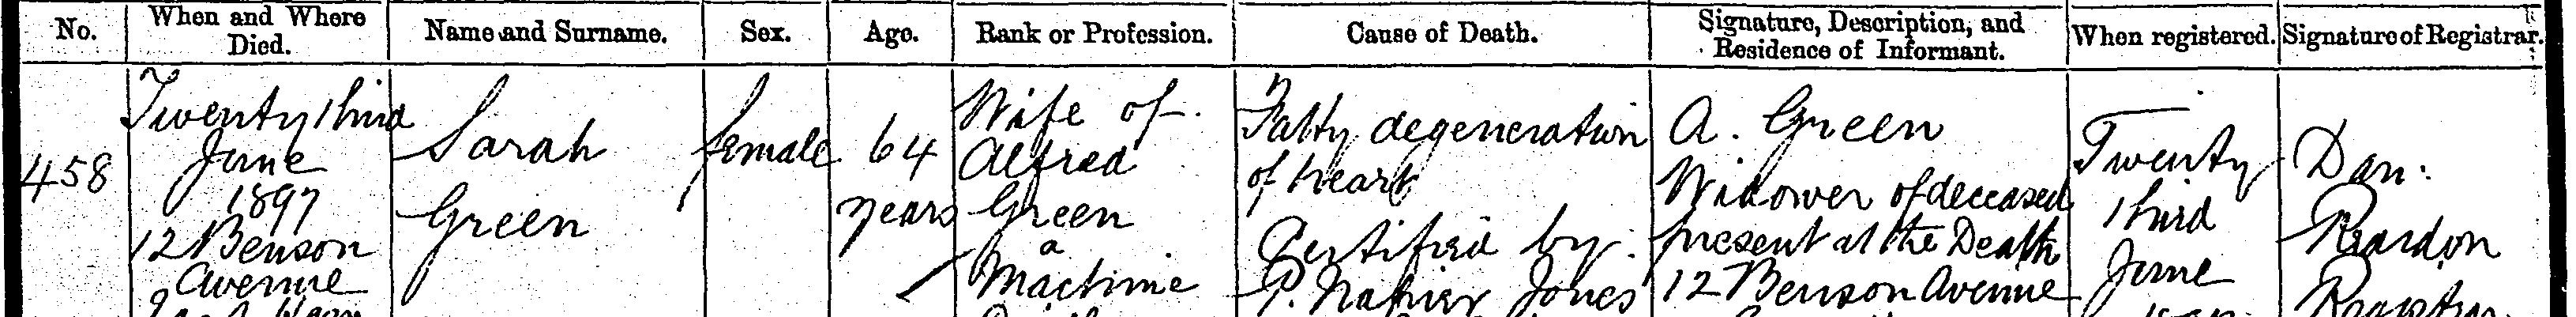 No.
When and Where Died.
Name and Surname.
Sex.
Age.
Rank or Profession.
Cause of Death.
Signature, Description, and Residence of Informant.
When registered.
Signature of Registrar.
458
Twenty third
June
1897
12 Benson
Avenue
Sarah
Green
female
64
years
Wife of
Alfred
Green
a
Machine
Fatty degeneration
of heart
Certified by
P. Napier Jones
A. Green
Widower of deceased
present at the Death
12 Benson Avenue
Twenty
third
June
Dan:
Reardon